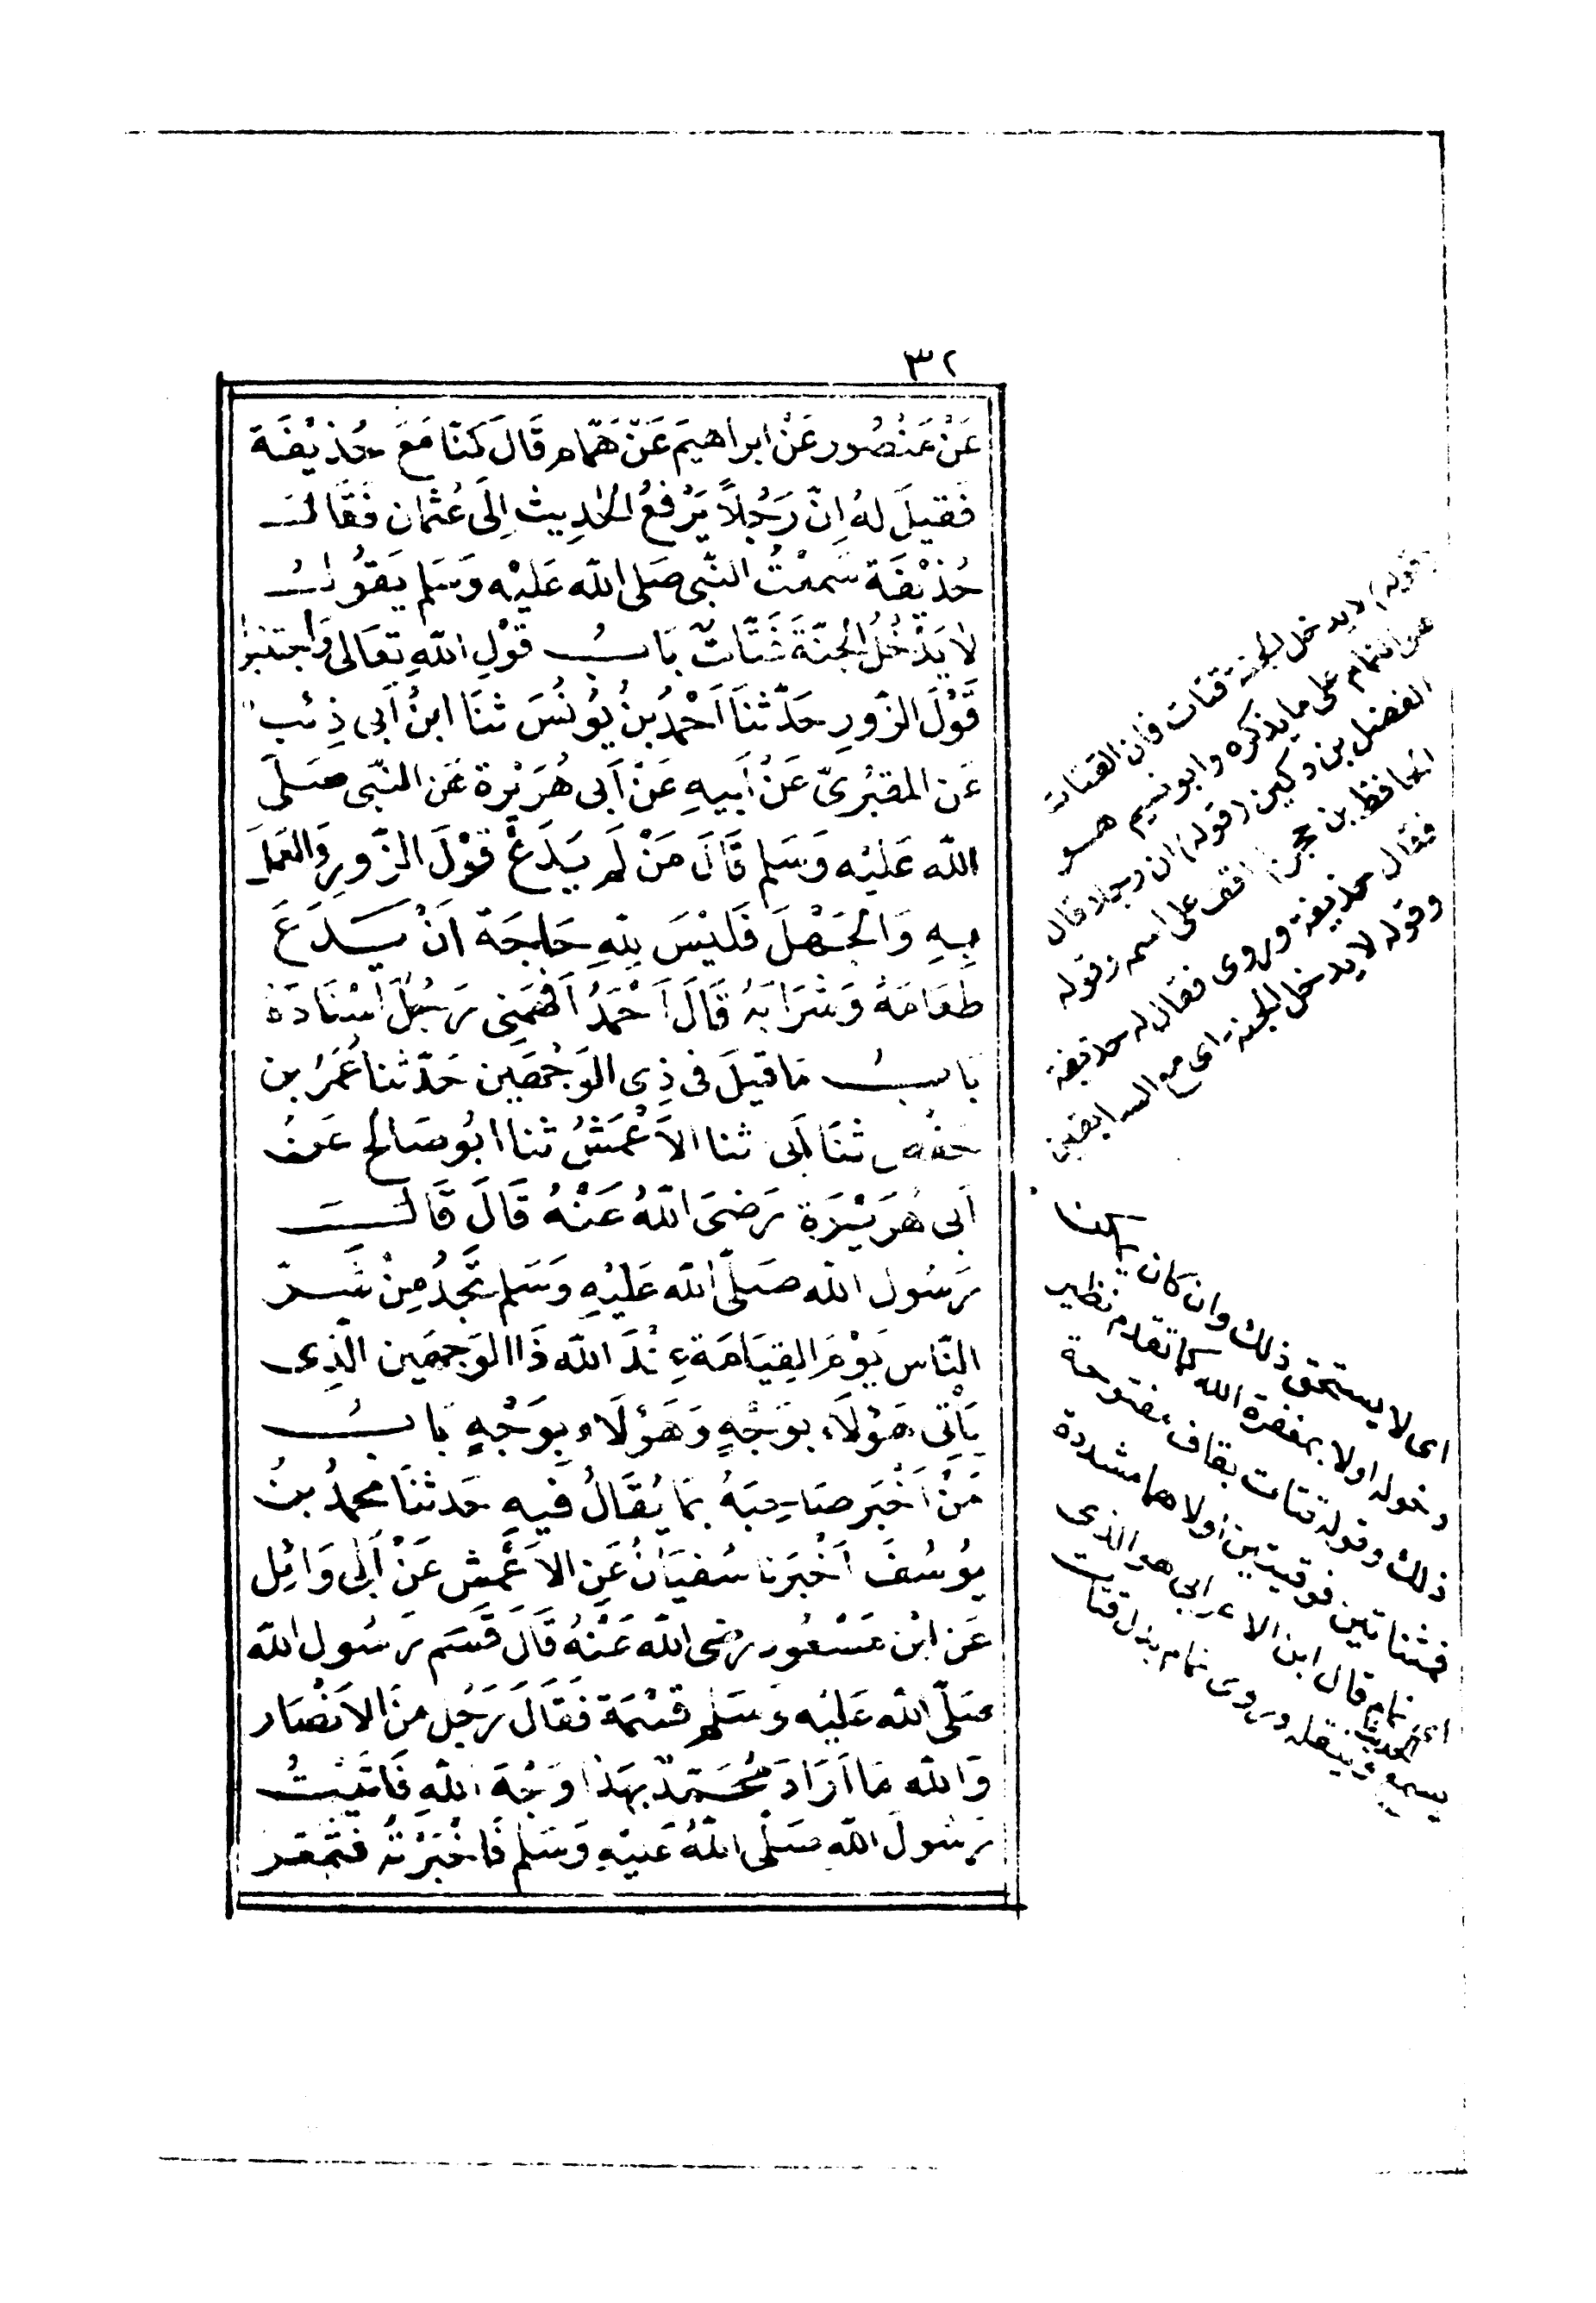 ٣٢
عَنْ مَنْصُور عَنْ ابراهيمَ عَنْ هَمّام قَالَ كُنّا مَعَ حُذيْفَة
فَقيلَ لهُ اِنّ رَجُلاً يَرْفعُ الحَدِيث اِلَى عُثمان فَقَالَ
حُذيْفَة سَمعْتُ النّبى صَلى الله عَليْه وَسَلم يَقوُلُ
لاَ يَدْخُلُ الْجنّةَ قَتّاتٌ بَابُ قوْلِ اللهِ تعَالى وَاجتنبُوا
قَوْلَ الزّورِ حَدّثنَا اَحْمَدُ بنُ يُونُسَ ثنَا ابنُ اَبى ذِئب
عَن المقبُرىّ عَنْ اَبيهِ عَنْ اَبى هُرَيْرة عَن النّبى صَلّى
الله عَليْه وَسَلم قَالَ مَنْ لَم يَدَعْ قوْلَ الزّورِ وَالعَمَلَ
بِهِ وَالجَهْلَ فَليْسَ لِلّهِ حَاجَة اَنْ يَدَعَ
طَعَامَهُ وَشَرَابَهُ قَالَ اَحْمَدُ اَفْهَمَنِى رَجُلٌ اسْنَادَهُ
بَابُ مَا قيلَ فى ذِى الوَجْهَين حَدّثنا عُمَرُ بن
حَفْص ثنَا اَبى ثنا الاَعْمَشُ ثنا ابُو صَالح عَنْ
اَبى هُرَيْرَة رَضىَ اللهُ عَنْهُ قَالَ قَالَ
رَسُول الله صَلّى الله عَليْهِ وَسَلم تَجدُ مِنْ شَرّ
النّاس يَوْمَ القِيَامَة عِنْدَ الله ذَا الوَجهَين الّذِى
يَأتِى هَؤلاَءِ بوَجْهٍ وَهَؤلاَءِ بوَجْهٍ بَابُ
مَنْ اَخْبَر صَاحِبَهُ بمَا يُقَالُ فيهِ حَدثنَا محمدُ بنُ
يوُسُفَ اَخْبَرَنا سُفيَانُ عَنِ الاَعْمَش عَنْ اَبى وَائِل
عَن ابْن مَسْعُود رضى الله عَنْهُ قَالَ قَسَم رَسُول الله
صَلّى الله عَليْه وَسَلم قسْمَة فَقَالَ رَجُل منَ الاَنْصَار
وَالله مَا اَرَادَ مُحَمّدٌ بهَذا وَجْهَ اللهِ فَاَتيْتُ
رَسُولَ الله صَلّى اللهُ عَليْهِ وَسَلم فَاَخْبَرْتهُ فتمَعّر
(قوله) لا يدخل الجنة قتات فان القتات
هو النمام على ما يذكره وابو نعيم هو
الفضل بن دكين (قوله) ان رجلا قال
الحافظ بن حجر لم اقف على اسمه وقوله
فقال حذيفة وروى فقال له حذيفة
وقوله لا يدخل الجنة اى مع السابقين
اى لا يستحق ذلك وان كان يمكن
دخوله اولا بمغفرة الله كما تقدم نظير
ذلك وقوله قتات بقاف مفتوحة
فمثناتين فوقيتين اولاهما مشددة
اى نمام قال ابن الاعرابى هو الذى
يسمع الحديث وينقله وروى نمام بدل قتات